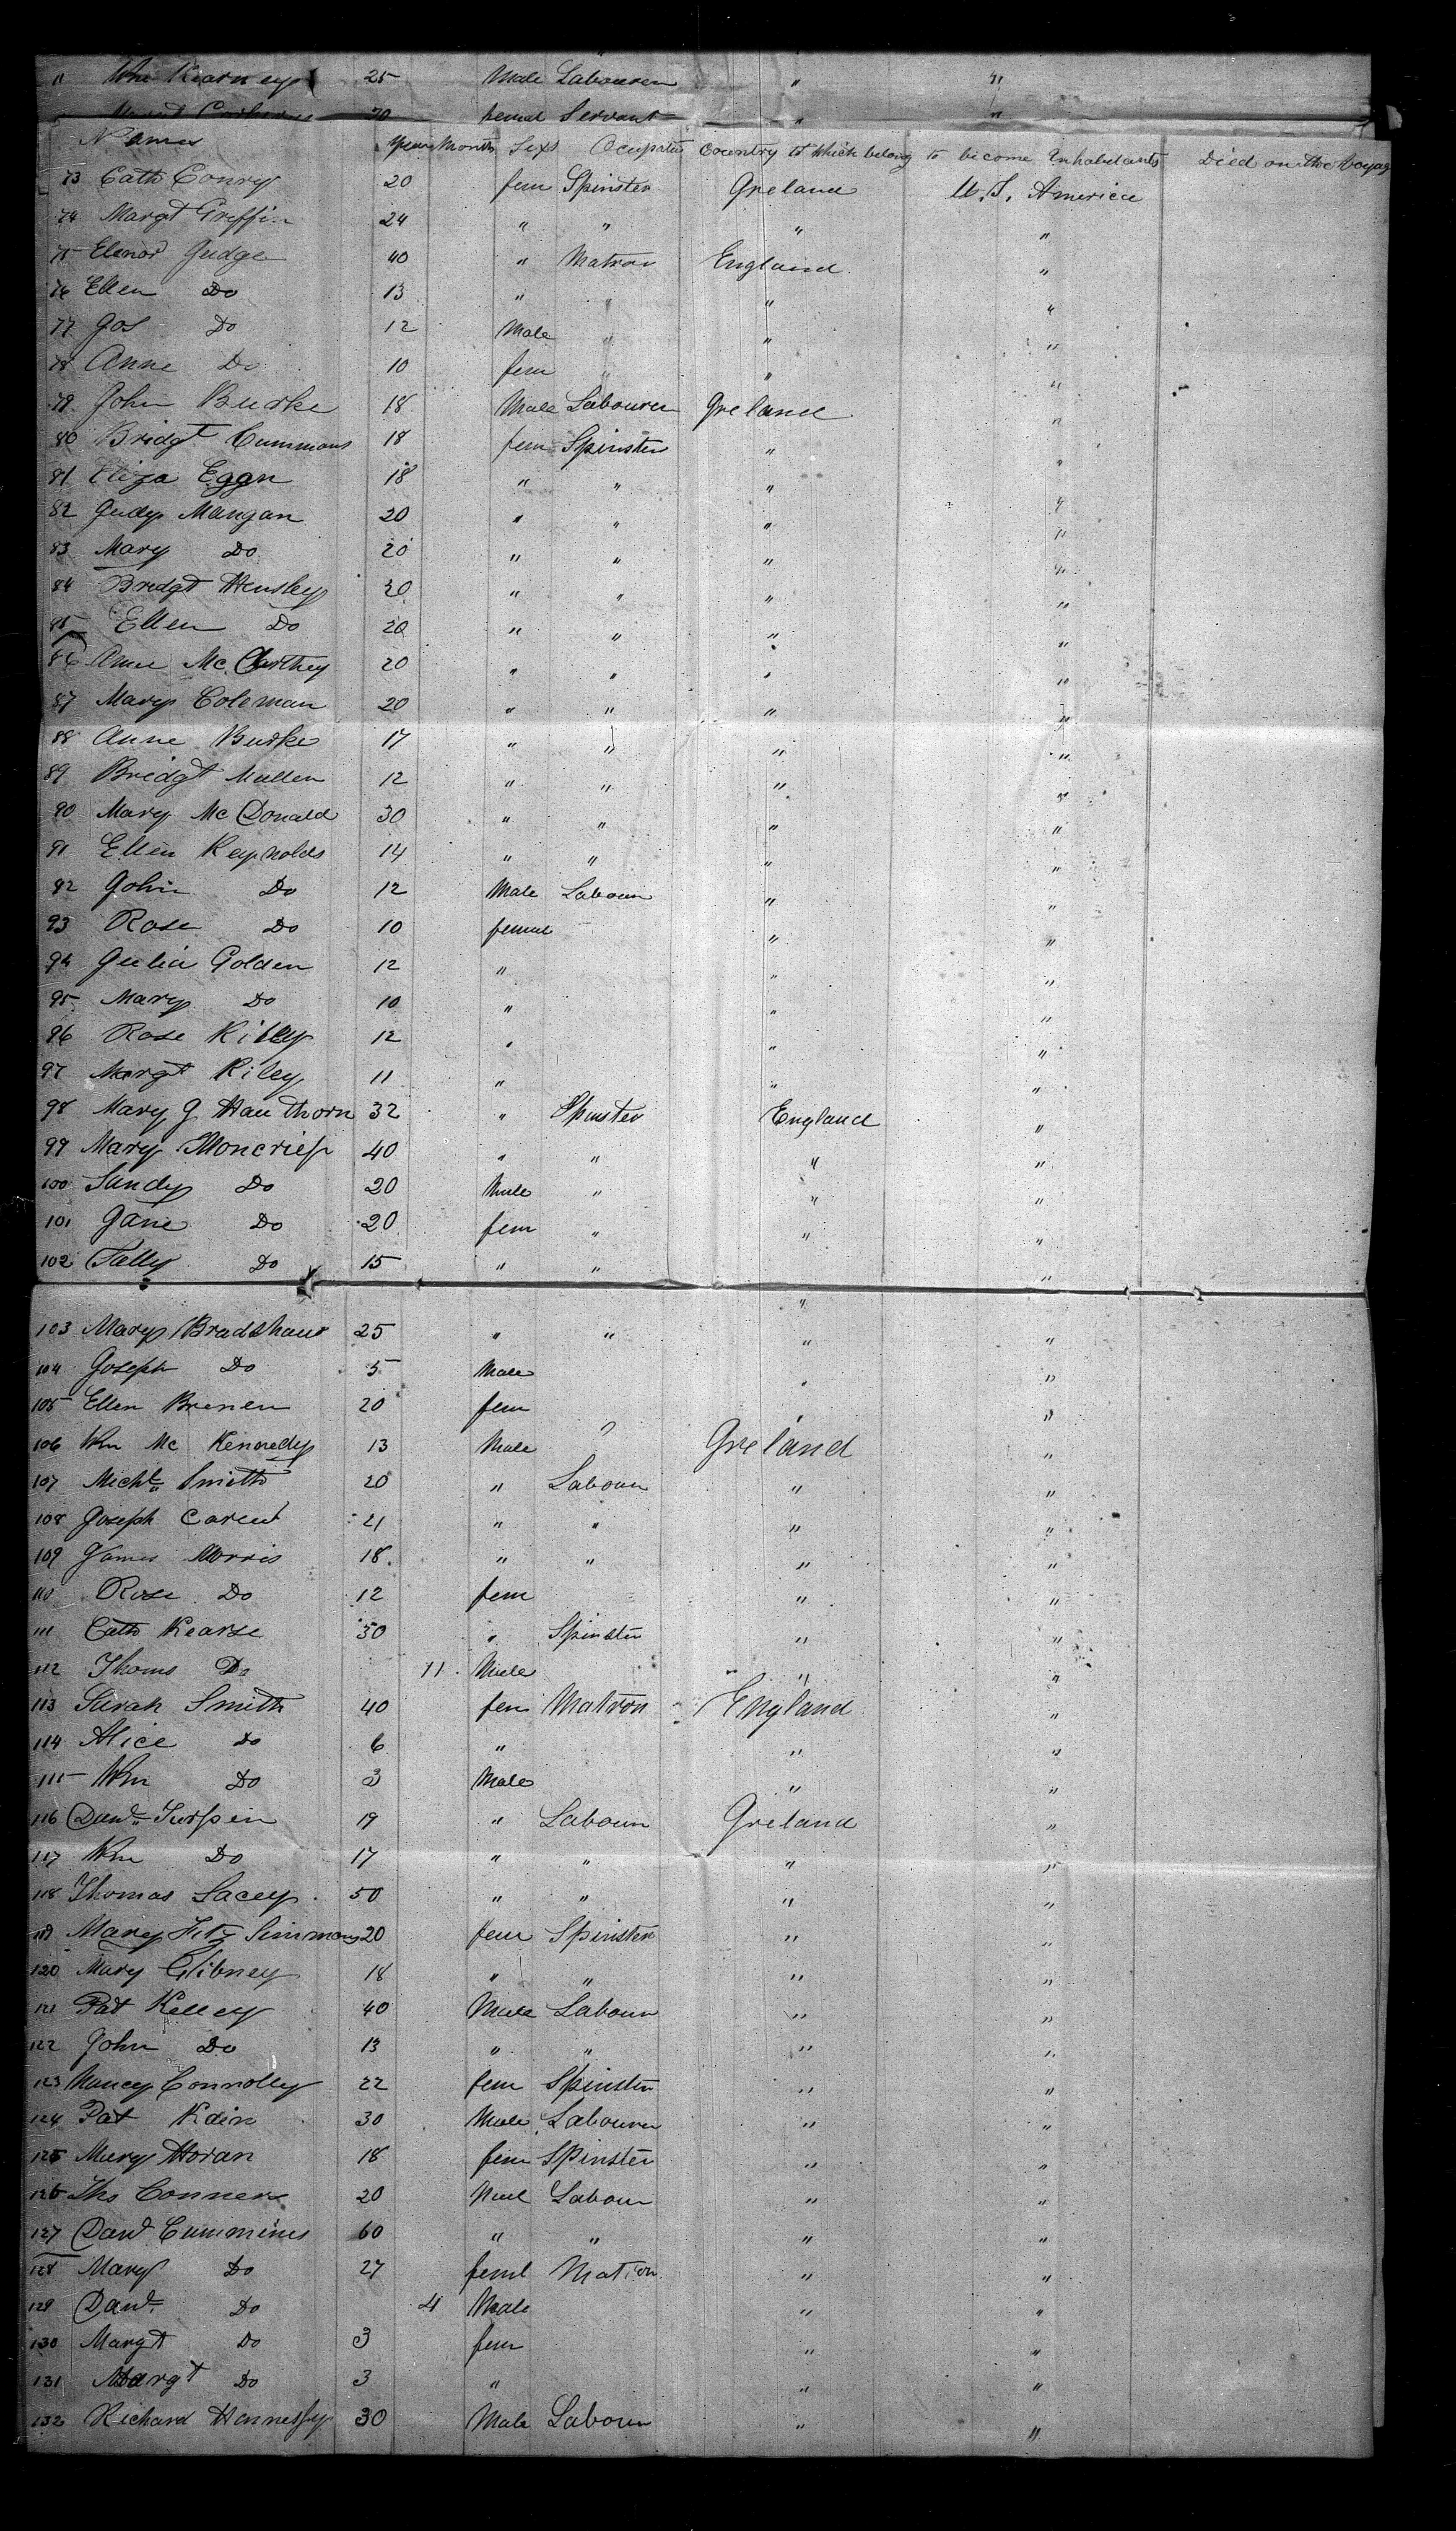 " Wm Kearney 25 Male Labourer " "
Margt 20 femal Servant " "
Names Years Months Sexs Ocupation Country to which belong to become Inhabetants Died on the Voyag
73 Cath Conry 20 fem Spinster Ireland U.S. America
74 Margt Greffin 24 " " " "
75 Elenor Judge 40 " Matron England "
76 Ellen Do 13 " " " "
77 Jos Do 12 Male " " "
78 Anne Do 10 fem " " "
79 John Burke 18 Male Labourer Ireland "
80 Bridgt Cummons 18 fem Spinster " "
81 Eliza Eggn 18 " " " "
82 Judy Mangan 20 " " " "
83 Mary Do 20 " " " "
84 Bredgt Hensley 20 " " " "
85 Ellen Do 20 " " " "
86 Anne Mc Carthey 20 " " " "
87 Mary Coleman 20 " " " "
88 Anne Burke 17 " " " "
89 Bridgt Mullen 12 " " " "
90 Mary Mc Donald 30 " " " "
91 Ellen Reynolds 14 " " " "
92 John Do 12 Male Labour " "
93 Rose Do 10 femal " "
94 Julia Golden 12 " " "
95 Mary Do 10 " " "
96 Rose Riley 12 " " "
97 Margt Riley 11 " " "
98 Mary J Hauthorn 32 " Spinster England "
99 Mary Moncrief 40 " " " "
100 Sandy Do 20 Male " " "
101 Jane Do 20 fem " " "
102 Tally Do 15 " " "
"
103 Mary Bradshaw 25 " " " "
104 Joseph Do 5 Male " "
105 Ellen Brenen 20 fem " "
106 Wm Mc Kennedy 13 Male " Ireland "
107 Michl Smith 20 " Labour " "
108 Joseph Carent 21 " " " "
109 James Morris 18 " " " "
110 Rose Do 12 fem " "
111 Cath Kearse 30 " Spinster " "
112 Thoms Do 11 Male " "
113 Sarah Smith 40 fem Matron England "
114 Alice Do 6 " " "
115 Wm Do 3 Male " "
116 Danl Turpin 19 " Labour Ireland "
117 Wm Do 17 " " " "
118 Thomas Lacey 50 " " " "
119 Mary Fitz Simmons 20 fem Spinster " "
120 Mary Gibney 18 " " " "
121 Pat Kelley 40 Male Labour " "
122 John Do 13 " " " "
123 Nancy Connolly 22 fem Spinster " "
124 Pat Kain 30 Male Labourer " "
125 Mary Horan 18 fem Spinster " "
126 Ths Conners 20 Mael Labour " "
127 Danl Cummins 60 " " " "
128 Mary Do 27 feml Matron " "
129 Danl Do 4 Male " "
130 Margt Do 3 fem " "
131 Margt Do 3 " " "
132 Richard Hennessy 30 Male Labour " "